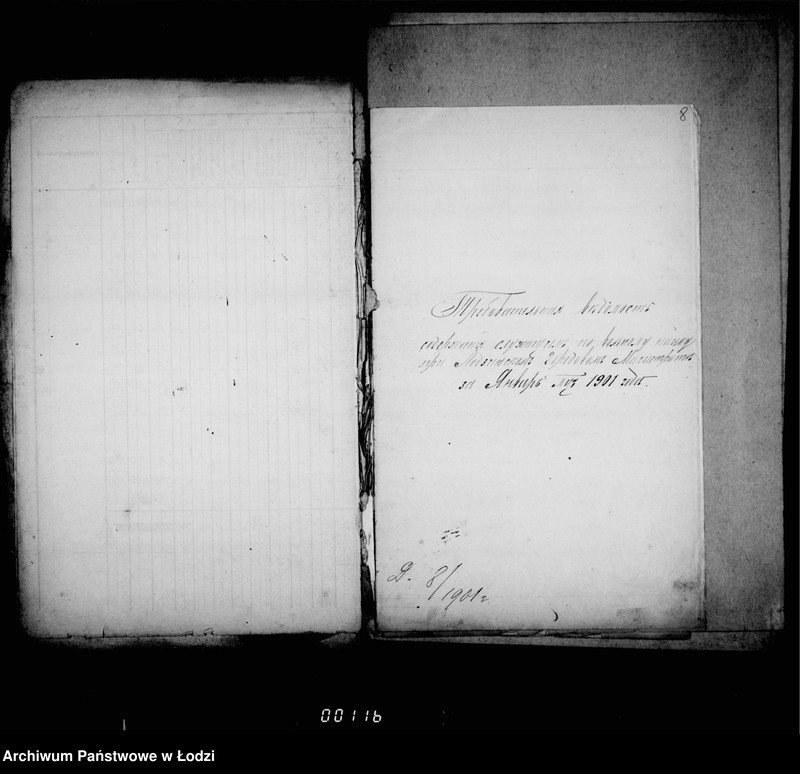 8
Требовательная ведомость
содержания служащим по вольному найму
при Лодзинском Городовом Магистрате
за Январь мц 1901 года.
Д. 8/1901 г.
00116
Archiwum Państwowe w Łodzi